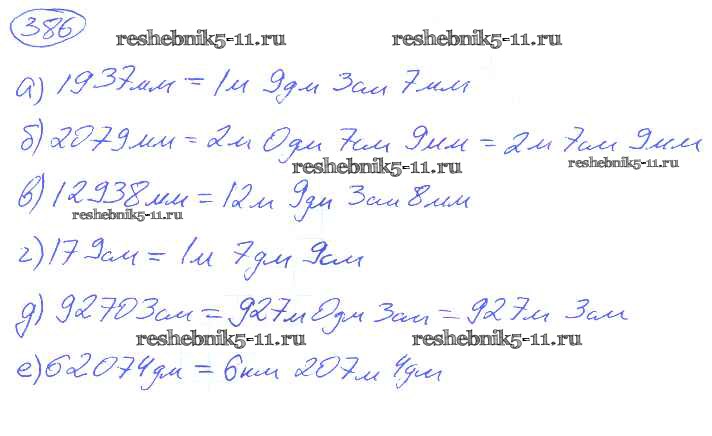 386
reshebnik5-11.ru reshebnik5-11.ru
а) 1937мм = 1м 9дм 3см 7мм
б) 2079мм = 2м 0дм 7см 9мм = 2м 7см 9мм
reshebnik5-11.ru reshebnik5-11.ru
в) 12938мм = 12м 9дм 3см 8мм
reshebnik5-11.ru
г) 179см = 1м 7дм 9см
д) 92703см = 927м 0дм 3см = 927м 3см
reshebnik5-11.ru reshebnik5-11.ru
е) 62074дм = 6км 207м 4дм